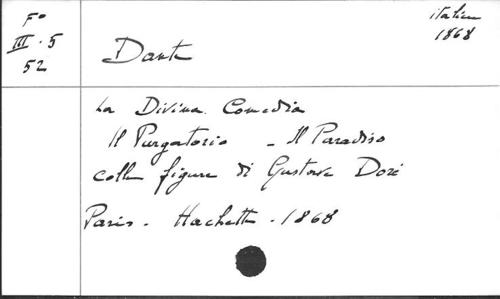 Fº
III.5
52
italien
1868
Dante
La Divina Comedia
Il Purgatorio - Il Paradiso
colle figure di Gustave Doré
Paris - Hachette - 1868